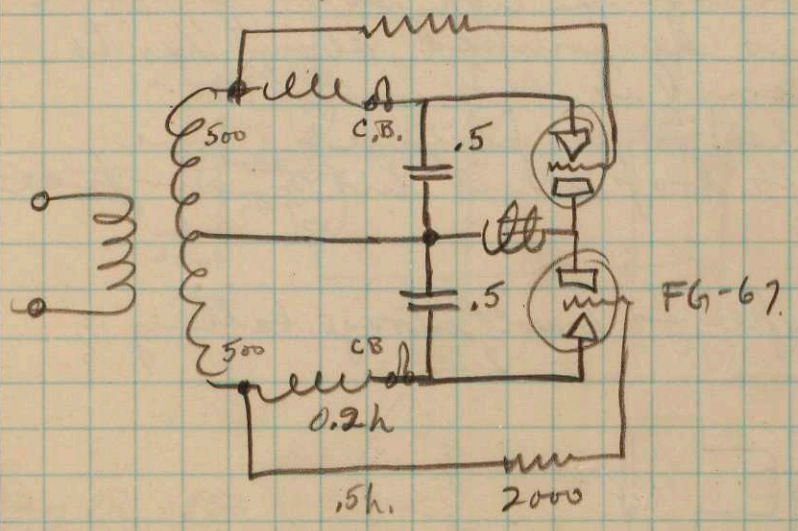 500
C.B.
.5
.5
FG-67.
500
CB
0.2h
.5h.
2000